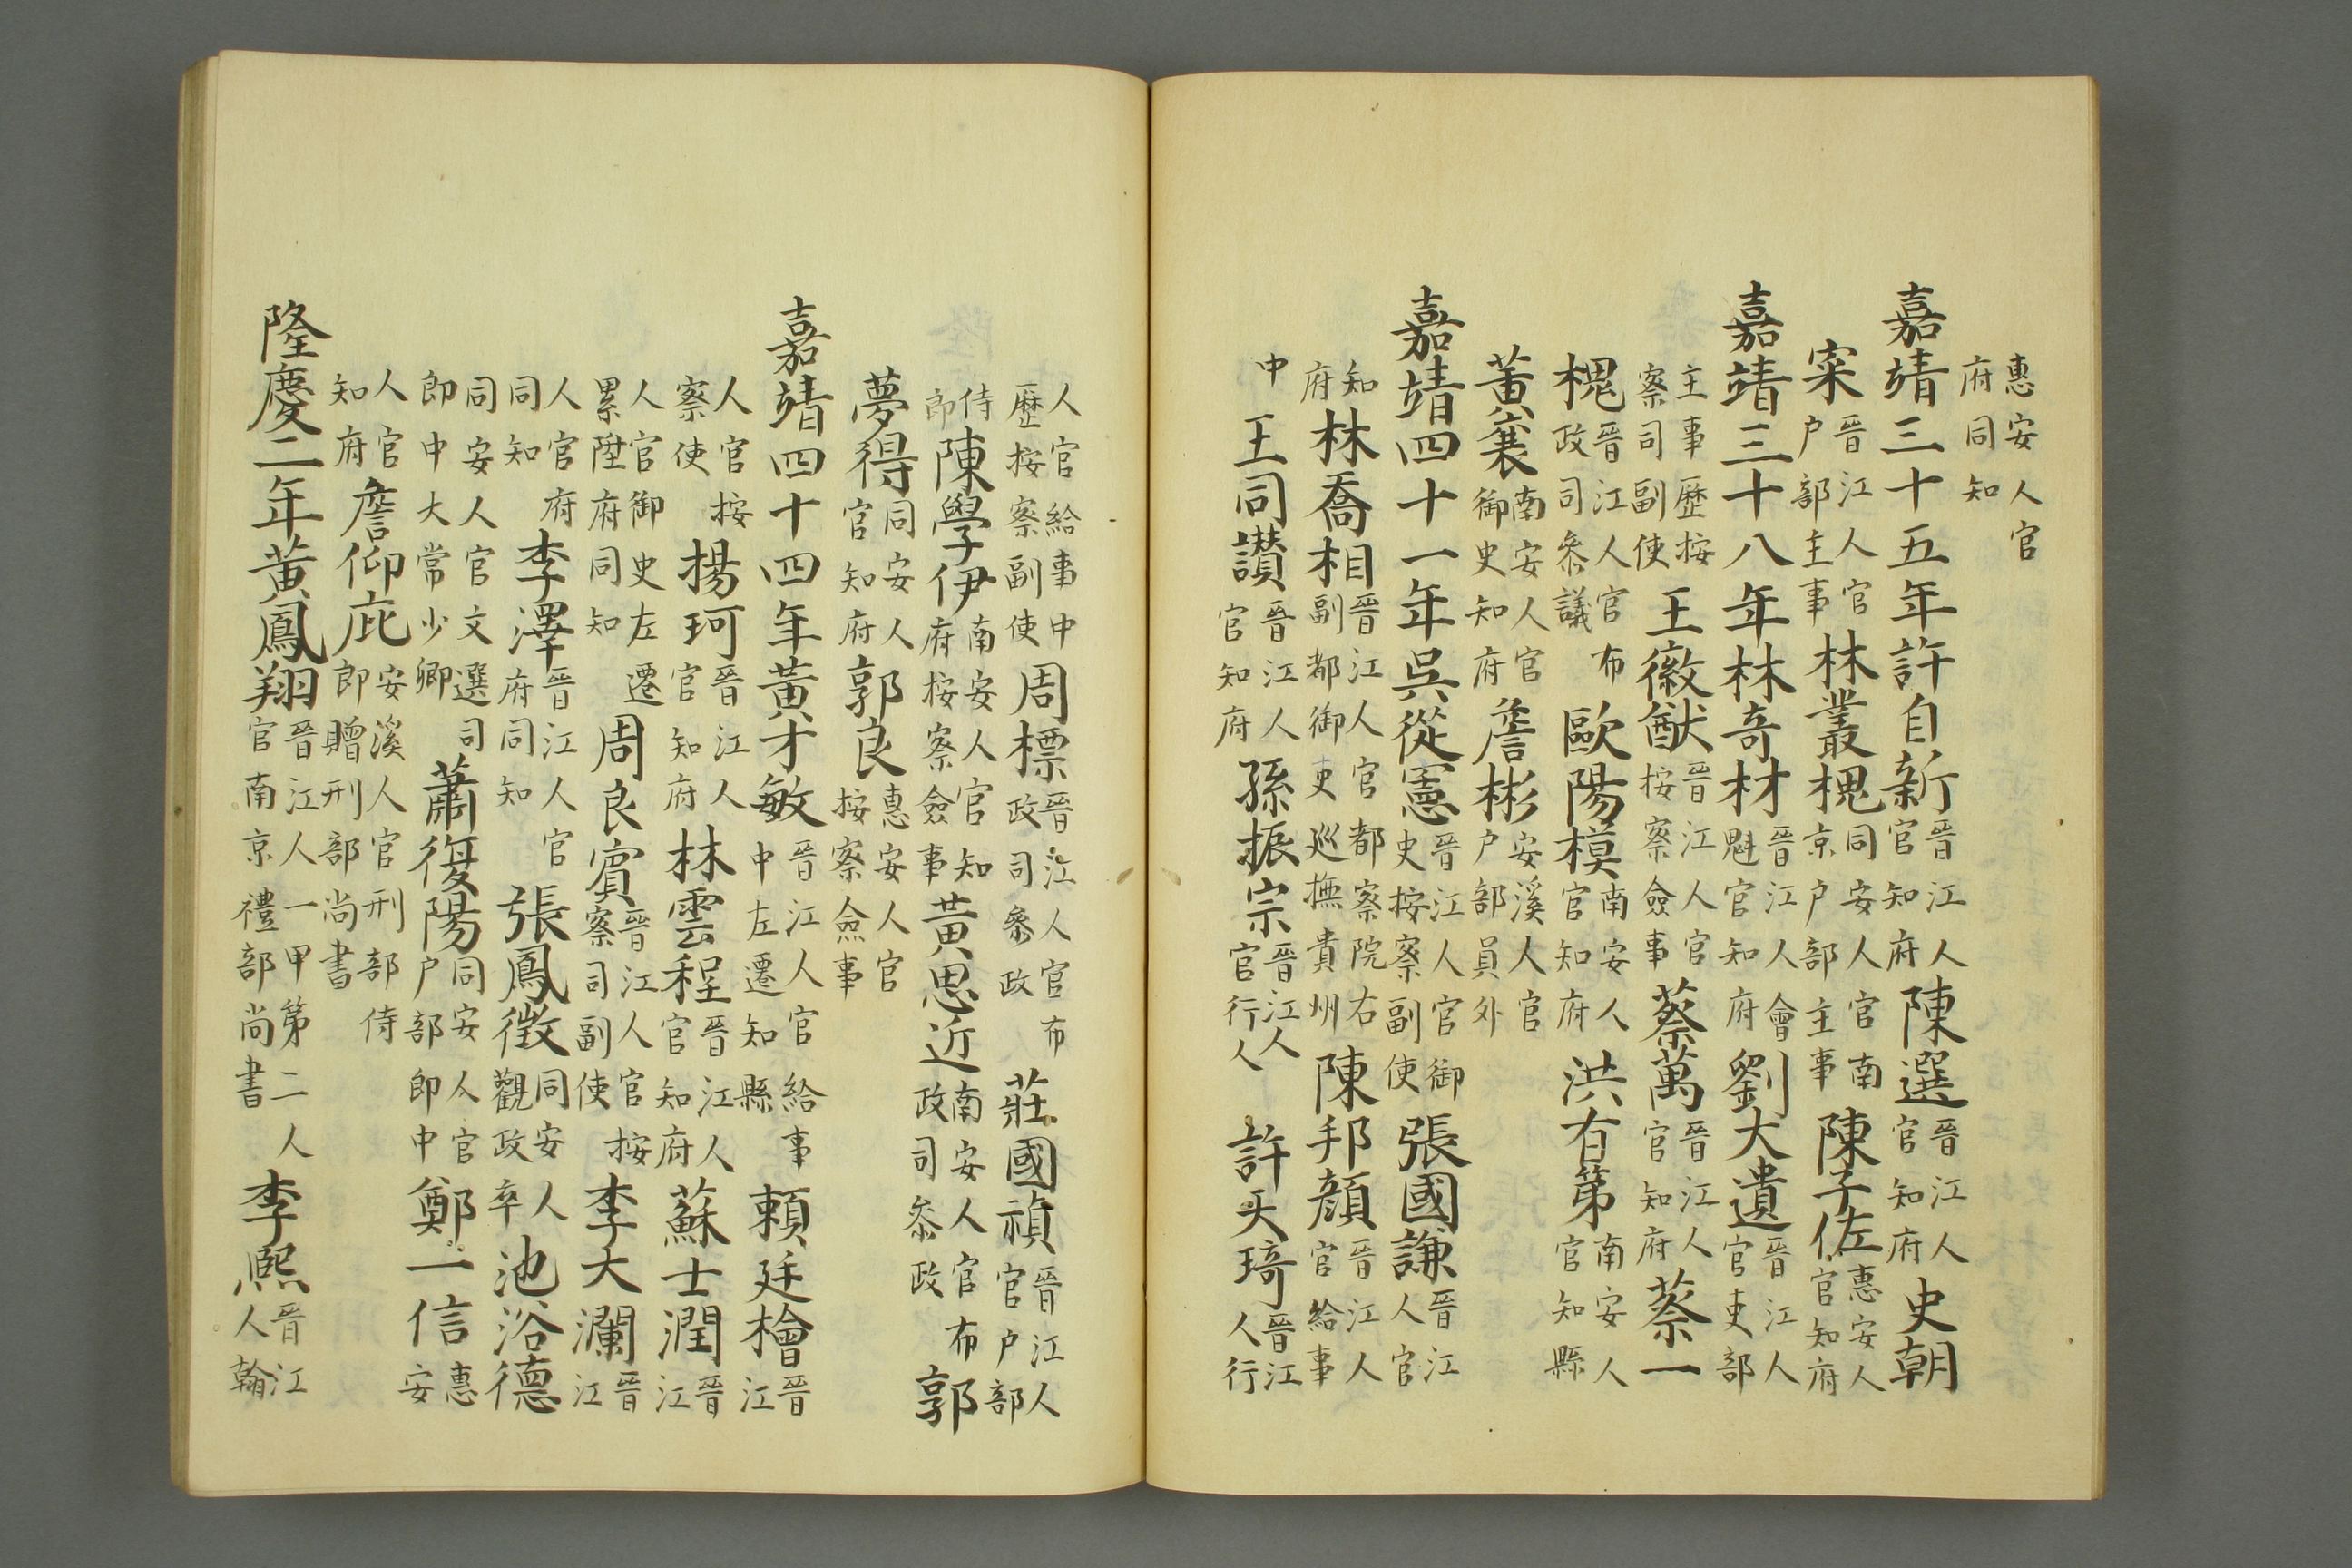 惠安人官府同知
嘉靖三十五年許自新晉江人官知府陳選晉江人官知府史朝
寀晉江人官户部主事林叢槐同安人官南京户部主事陳子佐惠安人官知府
嘉靖三十八年林奇材晉江人會魁官知府劉大遺晉江人官吏部
主事歷按察司副使王徽猷晉江人官按察僉事蔡萬晉江人官知府蔡一
槐晉江人官布政司叅議歐陽模南安人官知府洪有第南安人官知縣
黃襄南安人官御史知府詹彬安溪人官户部員外
嘉靖四十一年吳從憲晉江人官御史按察副使張國謙晉江人官
知府林喬相晉江人官都察院右副都御吏巡撫貴州陳邦顏晉江人官給事
中王同讃晉江人官知府孫振宗晉江人官行人許天琦晉江人行
人官給事中歷按察副使周標晉江人官布政司叅政莊國禎晉江人官户部
侍郎陳學伊南安人官知府按察僉事黃思近南安人官布政司叅政郭
夢得同安人官知府郭良惠安人官按察僉事
嘉靖四十四年黃才敏晉江人官給事中左遷知縣賴廷檜晉江
人官按察使楊珂晉江人官知府林雲程晉江人官知府蘇士潤晉江
人官御史左遷累陞府同知周良賓晉江人官按察司副使李大瀾晉江
人官府同知李澤晉江人官府同知張鳳徵同安人觀政卒池浴德
同安人官文選司郎中大常少卿蕭復陽同安人官户部郎中鄭一信惠安
人官知府詹仰庇安溪人官刑部侍郎贈刑部尚書
隆慶二年黃鳳翔晉江人一甲第二人官南京禮部尚書李熙晉江人翰